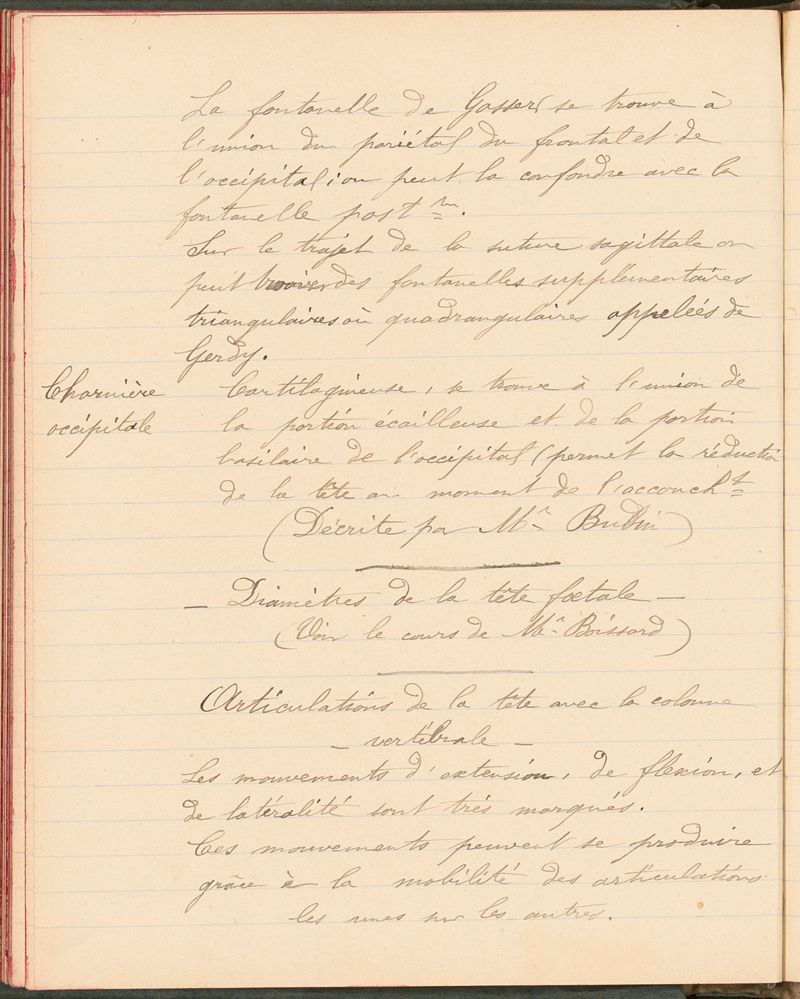 La fontanelle de Gasser se trouve à
l'union du pariétal du frontal et de
l'occipital; on peut la confondre avec la
fontanelle post re.
Sur le trajet de la suture sagittale on
peut trouver des fontanelles supplémentaires
triangulaires ou quadrangulaires appeleés de
Gerdy.
Charnière
occipitale
Cartilagineuse, se trouve à l'union de
la portion écailleuse et de la portion
basilaire de l'occipital (permet la réduction
de la tête au moment de l'accouch t
(Décrite par Mr Budin)
— Diamètres de la tête fœtale —
(Voir le cours de Mr Boissard)
Articulations de la tête avec la colonne
— vertébrale —
Les mouvements d'extension, de flexion, et
de latéralité sont très marqués.
Ces mouvements peuvent se produire
grâce à la mobilité des articulations
les unes sur les autres.